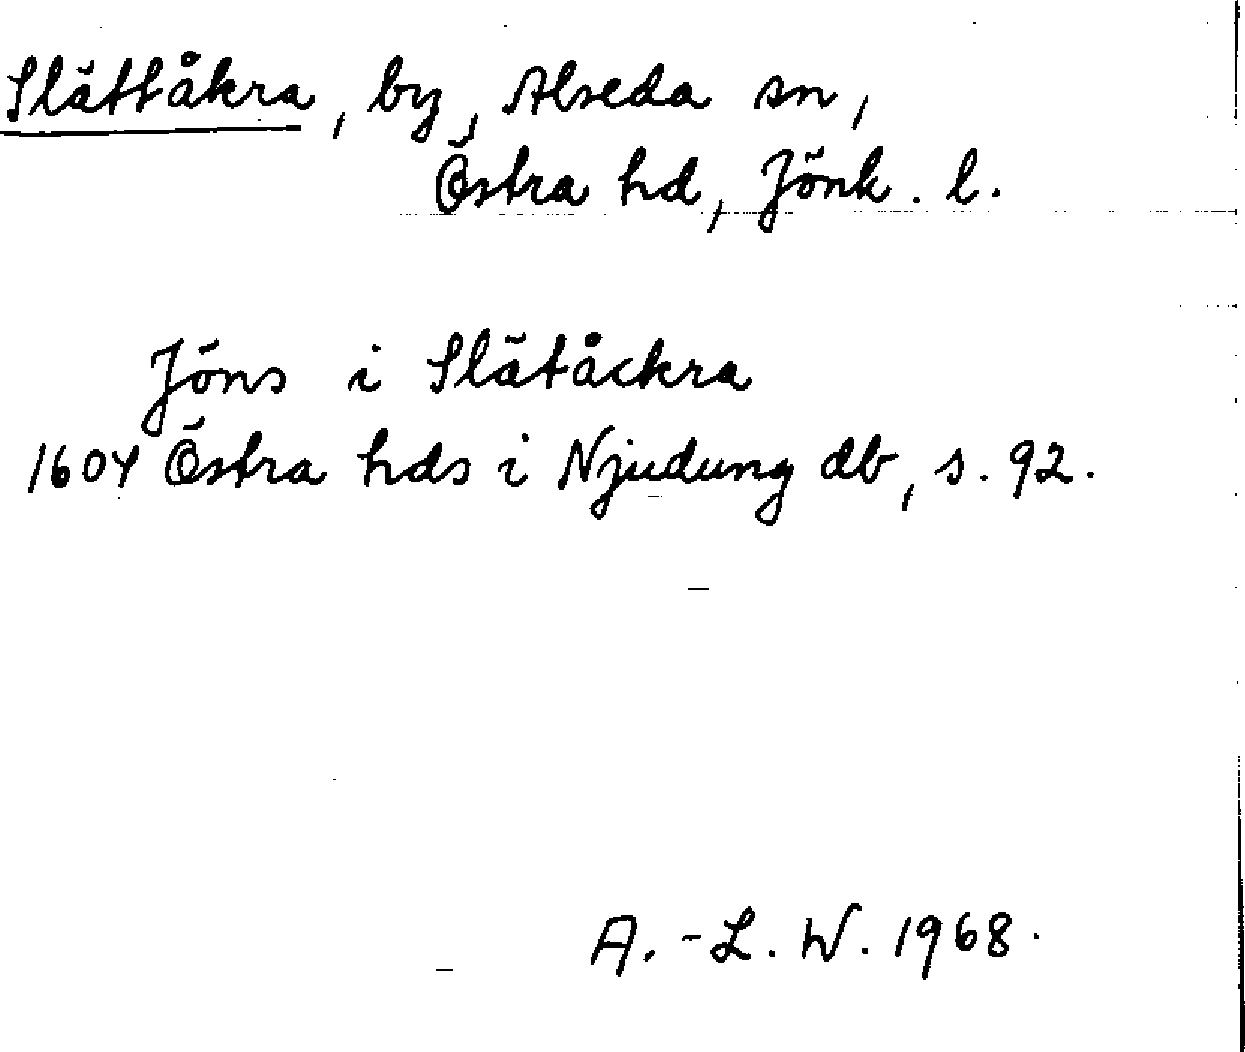 Slättåkra, by, Alseda sn,
Östra hd, Jönk. l.
Jöns i Slätåckra
1604 Östra hds i Njudung db, s. 92.
A.-L. W. 1968.